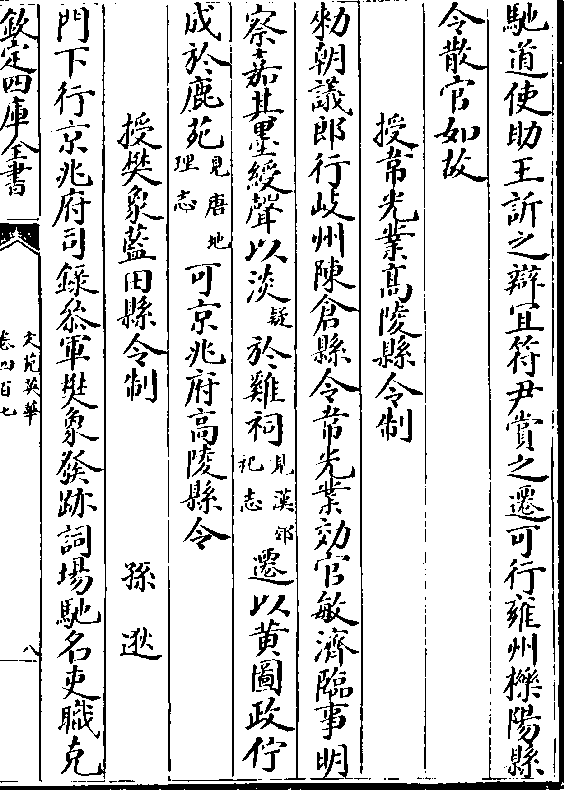 馳道使助王訢之辯宜符尹賞之遷可行雍州櫟陽縣
令散官如故
授常光業高陵縣令制
勅朝議郎行岐州陳倉縣令常光業効官敏濟臨事明
察嘉其墨綬聲以淡疑於雞祠見漢郊祀志遷以黄圖政佇
成於鹿苑見唐地理志可京兆府高陵縣令
授樊象藍田縣令制 孫逖
門下行京兆府司錄叅軍樊象發跡詞場馳名吏職克
欽定四庫全書
文苑英華
卷四百七
八